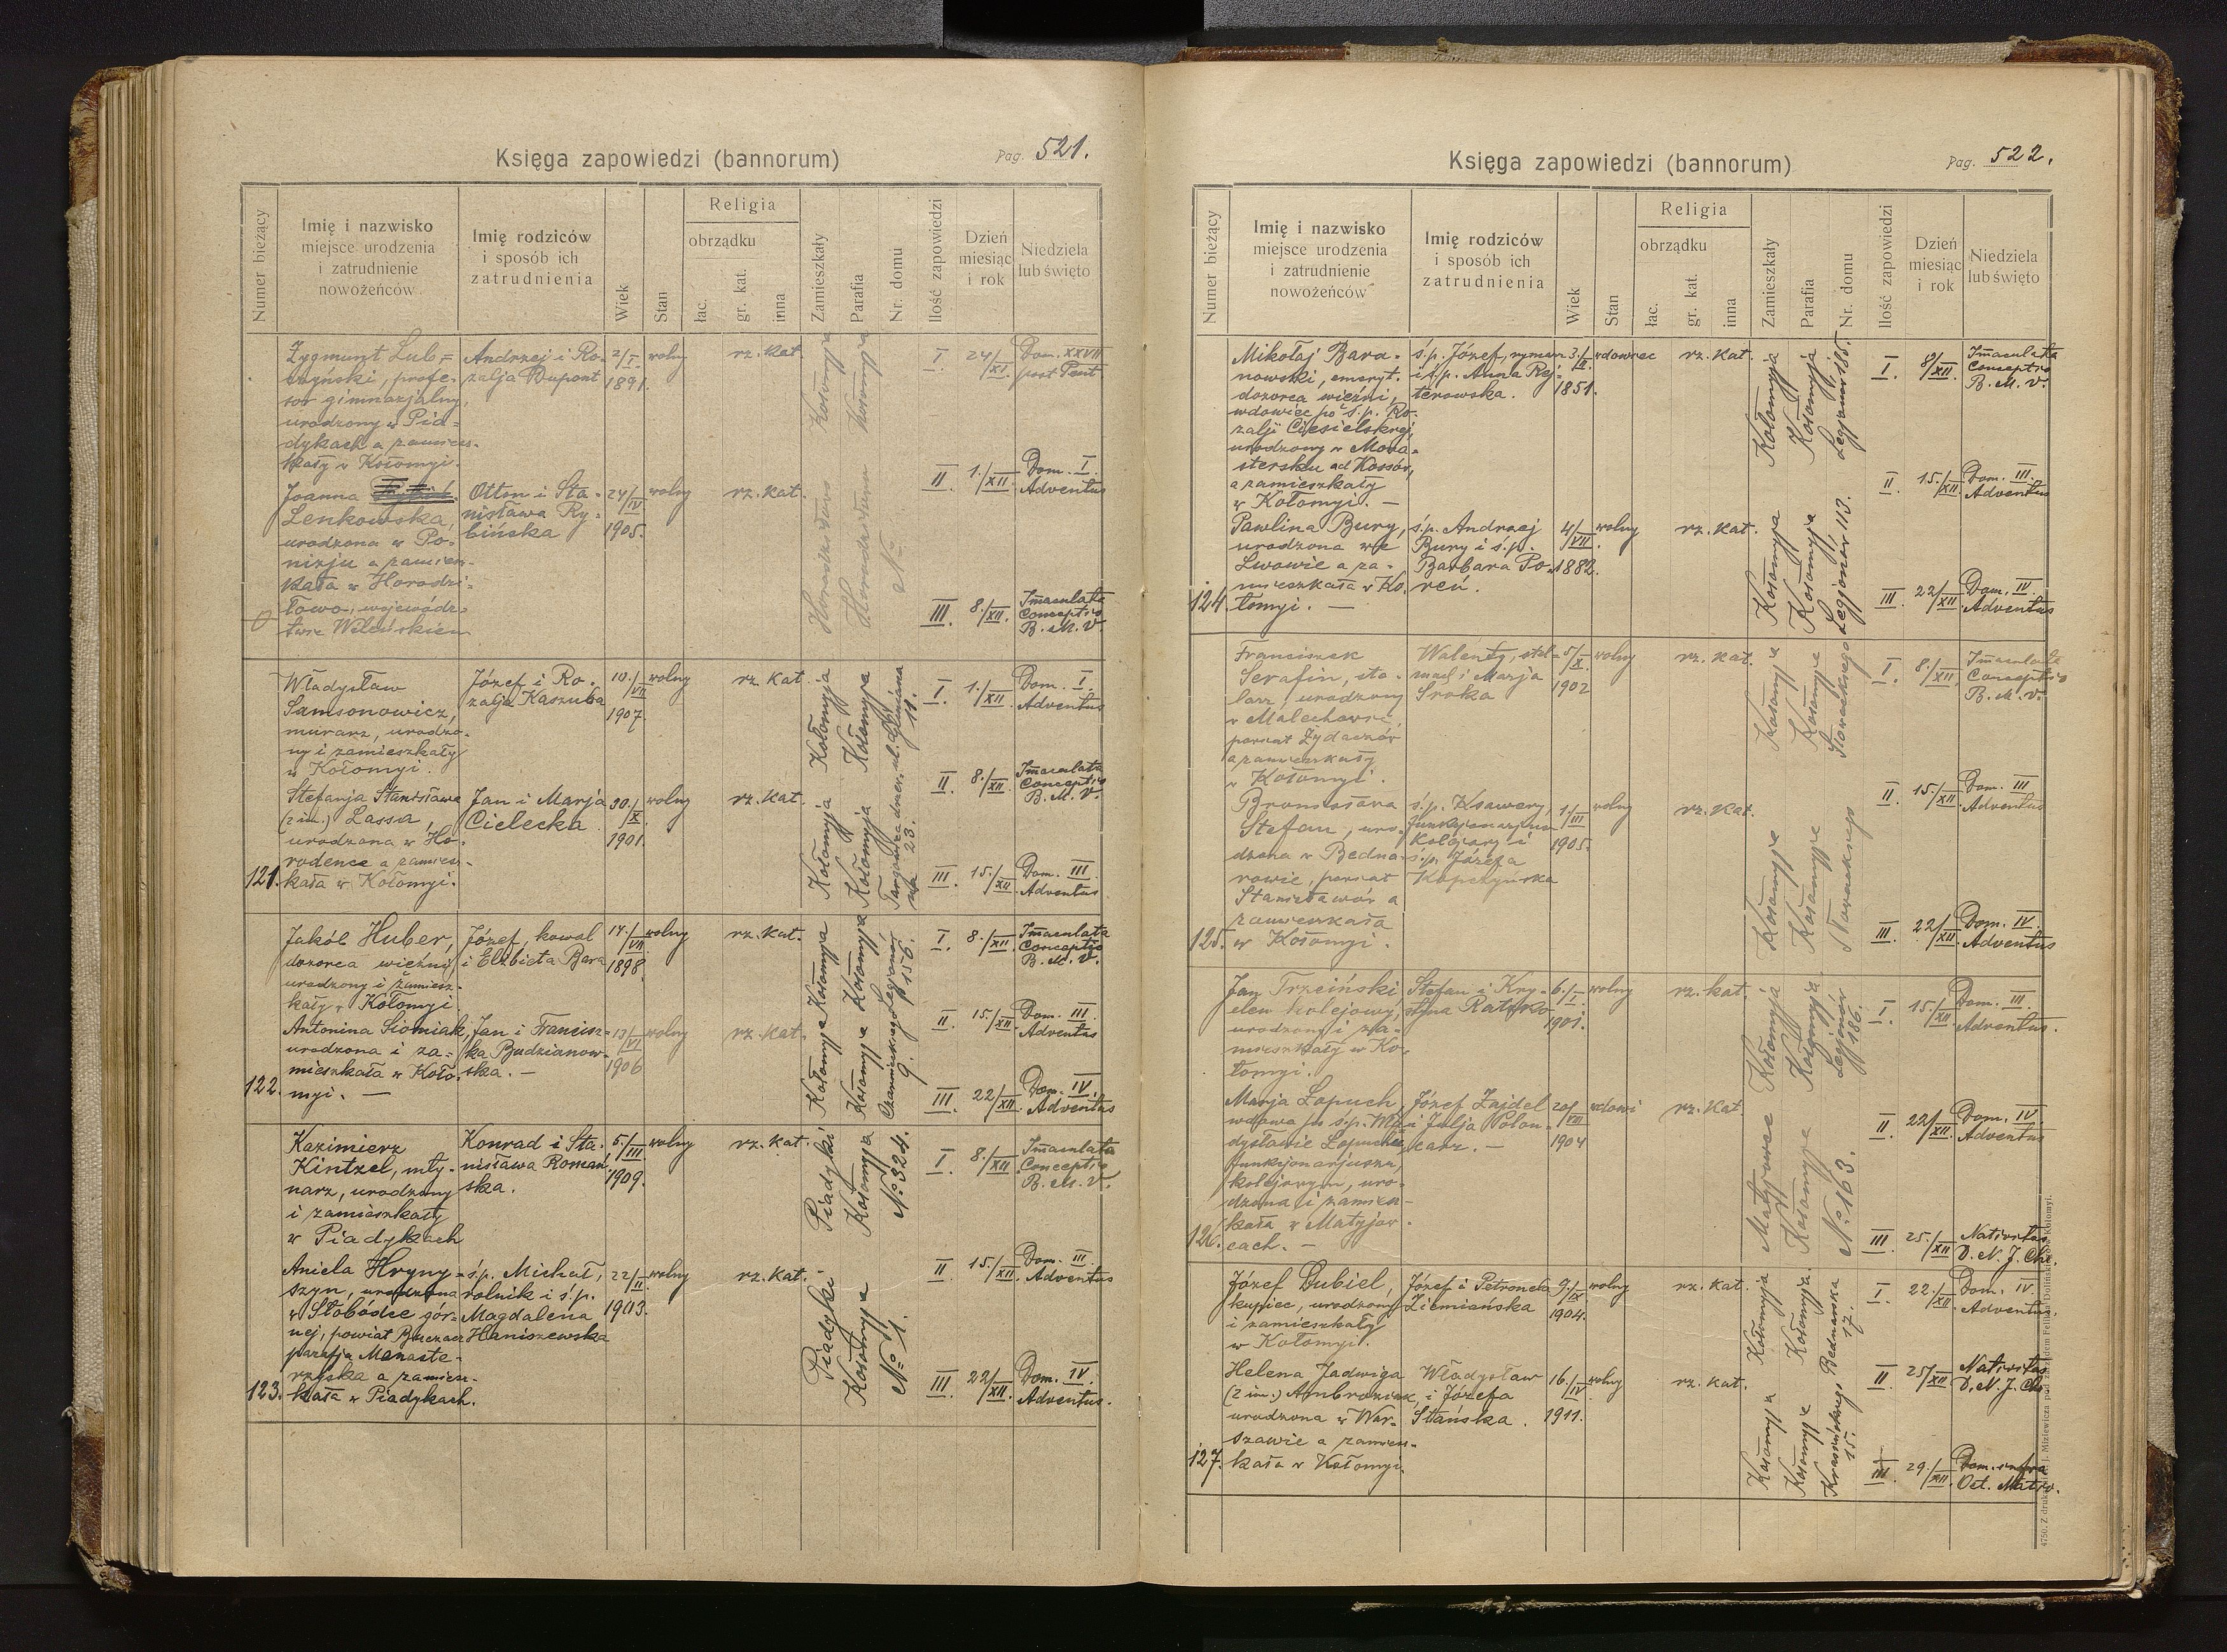 Księga zapowiedzi (bannorum)
Pag. 521.
Numer bieżący
Imię i nazwisko
miejsce urodzenia
i zatrudnienie
nowożeńców
Imię rodziców
i sposób ich
zatrudnienia
Wiek
Stan
Religia
obrządku
łac.
gr. kat.
inna
Zamieszkały
Parafia
Nr. domu
Ilość zapowiedzi
Dzień
miesiąc
i rok
Niedziela
lub święto
Zygmunt Lub=
czyński, profe-
sor gimnazjalny,
urodzony w Pia=
dykach a zamiesz-
kały w Kołomyi.
Andrzej i Ro-
zalja Dupont
2/I
1891.
wolny
rz. kat.
Kołomyja
Kołomyja
I
24/XI
Dom. XXVII
post Pent
II
1./XII.
Dom. I.
Adventus
Joanna
Lenkowska,
urodzona w Po-
nizju a zamiesz-
kała w Horodzi-
łowo, wojewódz-
twie Wileńskiem
Otton i Sta-
nisława Ry-
bińska
24/IV
1905.
wolny
rz. kat.
No
III
8./XII.
Immaculata
Conceptio
B. M. V.
0
Władysław
Samsonowicz,
murarz, urodzo-
ny i zamieszkały
w Kołomyi.
Józef i Ro-
zalja Kaszuba
10./VII
1907.
wolny
rz. kat.
Kołomyja
Kołomyja
11.
I
1./XII
Dom. I.
Adventus
II
8./XII
Immaculata
Conceptio
B. M. V.
Stefanja Stanisława
(2 im.) Lassa,
urodzona w Ho-
rodence a zamiesz-
kała w Kołomyi.
Jan i Marja
Cielecka
30./X.
1901.
wolny
rz. kat.
Kołomyja
Kołomyja
23.
III
15./XII
Dom. III
Adventus
121.
Jakób Huber,
dozorca więźni
urodzony i zamiesz-
kały w Kołomyi.
Józef, kowal
i Elżbieta Bara
14./VII
1898.
wolny
rz. kat.
Kołomyja
Kołomyja
Legjonów
156.
I
8./XII
Immaculata
Conceptio
B. M. V.
II
15./XII
Dom. III.
Adventus
Antonina Siomiak,
urodzona i za-
mieszkała w Koło-
myi. —
Jan i Francisz-
ka Budzianow-
ska. —
13/VI
1906
wolny
rz. kat.
Kołomyja
Kołomyja
Czarnieckiego
9.
III
22/XII.
Dom. IV.
Adventus
122.
Kazimierz
Kintzel, mły-
narz, urodzony
i zamieszkały
w Piadykach
Konrad i Sta-
nisława Romań-
ska.
5./III
1909.
wolny
rz. kat.
Piadyki
Kołomyja
No 324.
I
8./XII
Immaculata
Conceptio
B. M. V.
II
15./XII.
Dom. III
Adventus
Aniela Hryny-
szyn, urodzona
w Słobódce gór-
nej, powiat Buczacz
parafja Monaste-
rzyska a zamiesz-
kała w Piadykach.
ś.p. Michał,
rolnik i ś.p.
Magdalena
Haniszewska
22/II
1903.
wolny
rz. kat.
Piadyki
Kołomyja
No 1.
III
22/XII.
Dom. IV.
Adventus.
123.
Księga zapowiedzi (bannorum)
Pag. 522.
Numer bieżący
Imię i nazwisko
miejsce urodzenia
i zatrudnienie
nowożeńców
Imię rodziców
i sposób ich
zatrudnienia
Wiek
Stan
Religia
obrządku
łac.
gr. kat.
inna
Zamieszkały
Parafia
Nr. domu
Ilość zapowiedzi
Dzień
miesiąc
i rok
Niedziela
lub święto
Mikołaj Bara-
nowski, emeryt.
dozorca więźni,
wdowiec po ś.p. Ro-
zalji Ciesielskiej,
urodzony w Mona-
stersku ad Kossów,
a zamieszkały
w Kołomyi. —
ś.p. Józef, rymarz
i ś.p. Anna Rej-
terowska.
3./II.
1851.
wdowiec
rz. kat.
Kołomyja
Kołomyja
Legjonów 185.
I.
8/XII.
Immaculata
Conceptio
B. M. V.
II.
15./XII
Dom. III.
Adventus
Pawlina Bury,
urodzona we
Lwowie a za-
mieszkała w Ko-
łomyi. —
ś.p. Andrzej
Bury i ś.p.
Barbara Po-
reń.
4/VII.
1882.
wolny
rz. kat.
Kołomyja
Kołomyja
Legjonów 113.
III.
22/XII
Dom. IV
Adventus
124.
Franciszek
Serafin, sto-
larz, urodzony
w Malechowie,
powiat Żydaczów
a zamieszkały
w Kołomyi.
Walenty, stel-
mach i Marja
Sroka
5/X.
1902
wolny
rz. kat.
Kołomyja
Kołomyja
Słowackiego
I
8./XII.
Immaculata
Conceptio
B. M. V.
II
15./XII.
Dom. III
Adventus
Bronisława
Stefan, uro-
dzona w Bedna-
rowie, powiat
Stanisławów a
zamieszkała
w Kołomyi.
ś.p. Ksawery,
funkcjonarjusz
kolejowy i
ś.p. Józefa
Kopczyńska
1./III
1905.
wolny
rz. kat.
Kołomyja
Kołomyja
Słowackiego
III.
22/XII
Dom. IV.
Adventus
125.
Jan Trzciński
elew kolejowy,
urodzony i za-
mieszkały w Ko-
łomyi.
Stefan i Kry-
styna Ratajko
6./I.
1901.
wolny
rz. kat.
Kołomyja
Kołomyja
Legjonów
186.
I
15./XII.
Dom. III.
Adventus.
II
22/XII
Dom. IV
Adventus
Marja Łopuch,
wdowa po ś.p. Wła-
dysławie Łopuchu,
funkcjonarjuszu
kolejowym, uro-
dzona i zamiesz-
kała w Matyjow-
cach. —
Józef Zajdel
i Julja Polon-
karz. —
20/VIII
1904
wdowi
rz. kat.
Matyjowce
Kołomyja
No 163.
III
25./XII
Nativitas
D. N. J. Chr.
126.
Józef Dubiel,
kupiec, urodzony
i zamieszkały
w Kołomyi.
Józef i Petronela
Ziemiańska
9./IX
1904.
wolny
rz. kat.
Kołomyja
Kołomyja.
Bednarska
17.
I.
22./XII
Dom. IV.
Adventus.
II
25/XII
Nativitas
D. N. J. Chr.
Helena Jadwiga
(2 im.) Ambroziak,
urodzona w War-
szawie a zamiesz-
kała w Kołomyi.
Władysław
i Józefa
Stańska.
16./IV
1911.
wolny
rz. kat.
Kołomyja
Kołomyja
Krasińskiego
15.
III.
29./XII.
Dom. infra
Oct. Nativ.
127.